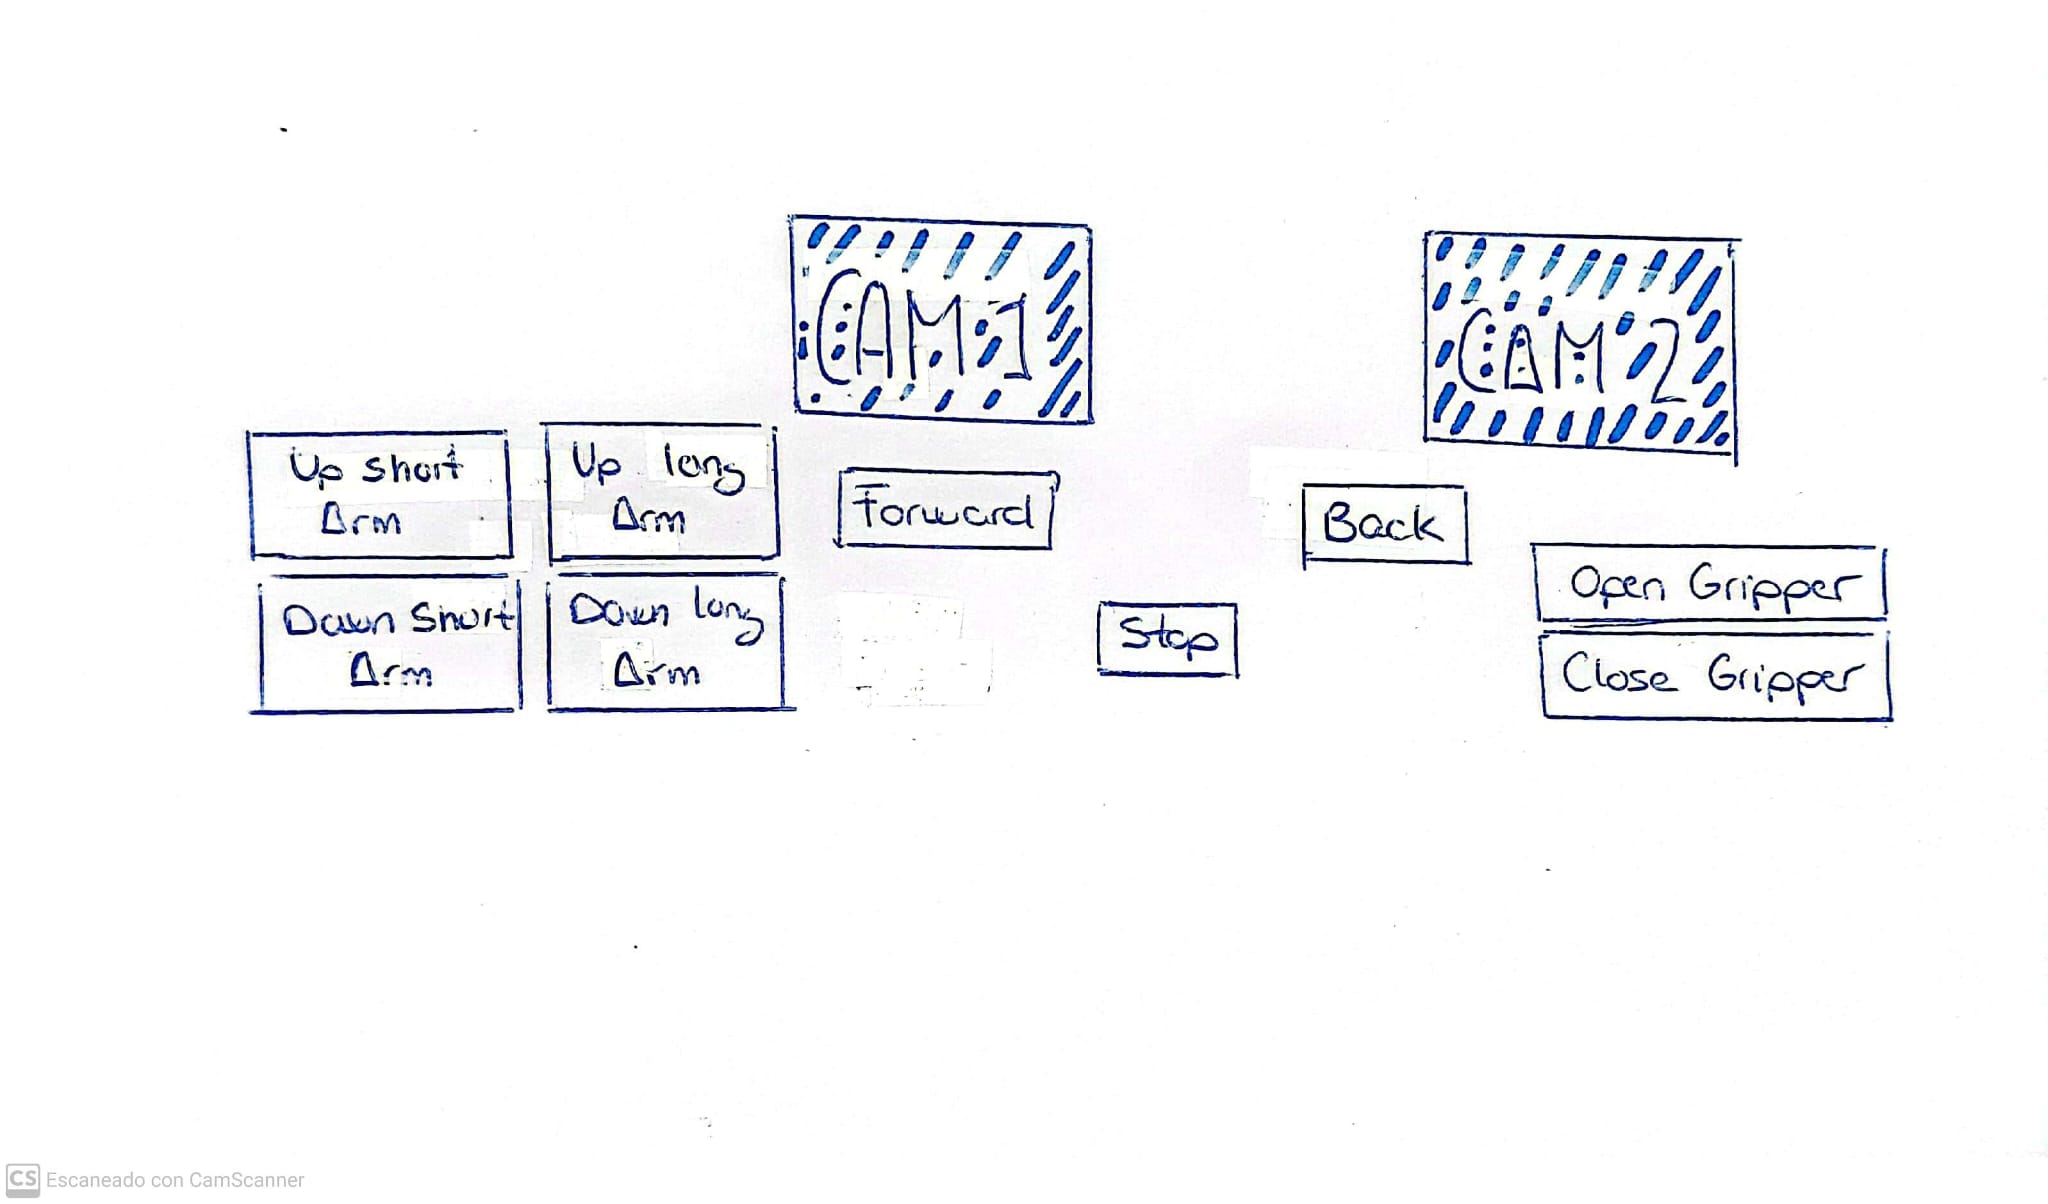 CAM 1
CAM 2
Up short
Arm
Up long
Arm
Forward
Back
Down Short
Arm
Down long
Arm
Stop
Open Gripper
Close Gripper
CS Escaneado con CamScanner